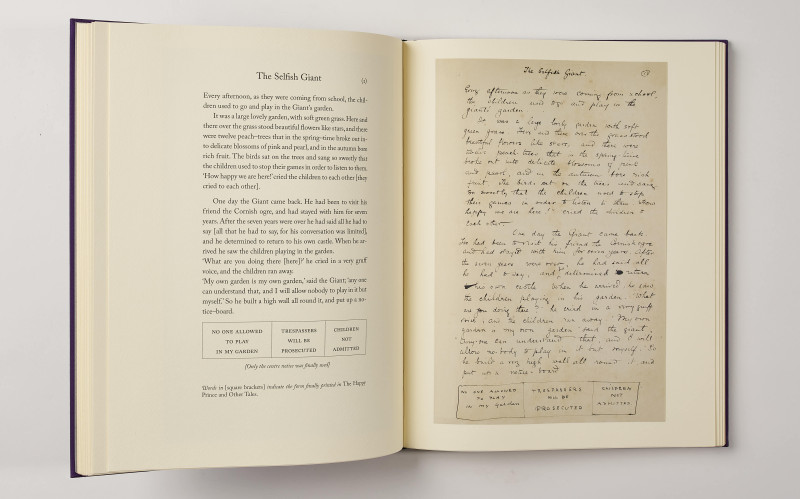 The Selfish Giant
(1)
Every afternoon, as they were coming from school, the chil-
dren used to go and play in the Giant's garden.
It was a large lovely garden, with soft green grass. Here and
there over the grass stood beautiful flowers like stars, and there
were twelve peach-trees that in the spring-time broke out in-
to delicate blossoms of pink and pearl, and in the autumn bore
rich fruit. The birds sat on the trees and sang so sweetly that
the children used to stop their games in order to listen to them.
'How happy we are here!' cried the children to each other [they
cried to each other].
One day the Giant came back. He had been to visit his
friend the Cornish ogre, and had stayed with him for seven
years. After the seven years were over he had said all he had to
say [all that he had to say, for his conversation was limited],
and he determined to return to his own castle. When he ar-
rived he saw the children playing in the garden.
'What are you doing there [here]?' he cried in a very gruff
voice, and the children ran away.
'My own garden is my own garden,' said the Giant; 'any one
can understand that, and I will allow nobody to play in it but
myself.' So he built a high wall all round it, and put up a no-
tice-board.
NO ONE ALLOWED
TO PLAY
IN MY GARDEN
TRESPASSERS
WILL BE
PROSECUTED
CHILDREN
NOT
ADMITTED
[Only the centre notice was finally used]
Words in [square brackets] indicate the form finally printed in The Happy
Prince and Other Tales.
The Selfish Giant.
Every afternoon as they were coming from school,
the children used to go and play in the
giant's garden.
It was a large lovely garden with soft
green grass. Here and there over the grass stood
beautiful flowers like stars, and there were
twelve peach trees that in the spring time
broke out into delicate blossoms of pink
and pearl, and in the autumn bore rich
fruit. The birds sat on the trees and sang
so sweetly that the children used to stop
their games in order to listen to them. How
happy we are here!' cried the children to
each other.
One day the Giant came back.
He had been to visit his friend the Cornish ogre
and had stayed with him for seven years. After
the seven years were over, he had said all
he had to say, and determined to return
to his own castle. When he arrived he saw
the children playing in his garden. 'What
are you doing there?' he cried in a very gruff
voice, and the children ran away. 'My own
garden is my own garden' said the giant,
'Any one can understand that, and I will
allow nobody to play in it but myself. So
he built a very high wall all round it and
put up a notice-board
NO ONE ALLOWED
TO PLAY
IN MY GARDEN
TRESPASSERS
WILL BE
PROSECUTED
CHILDREN
NOT
ADMITTED